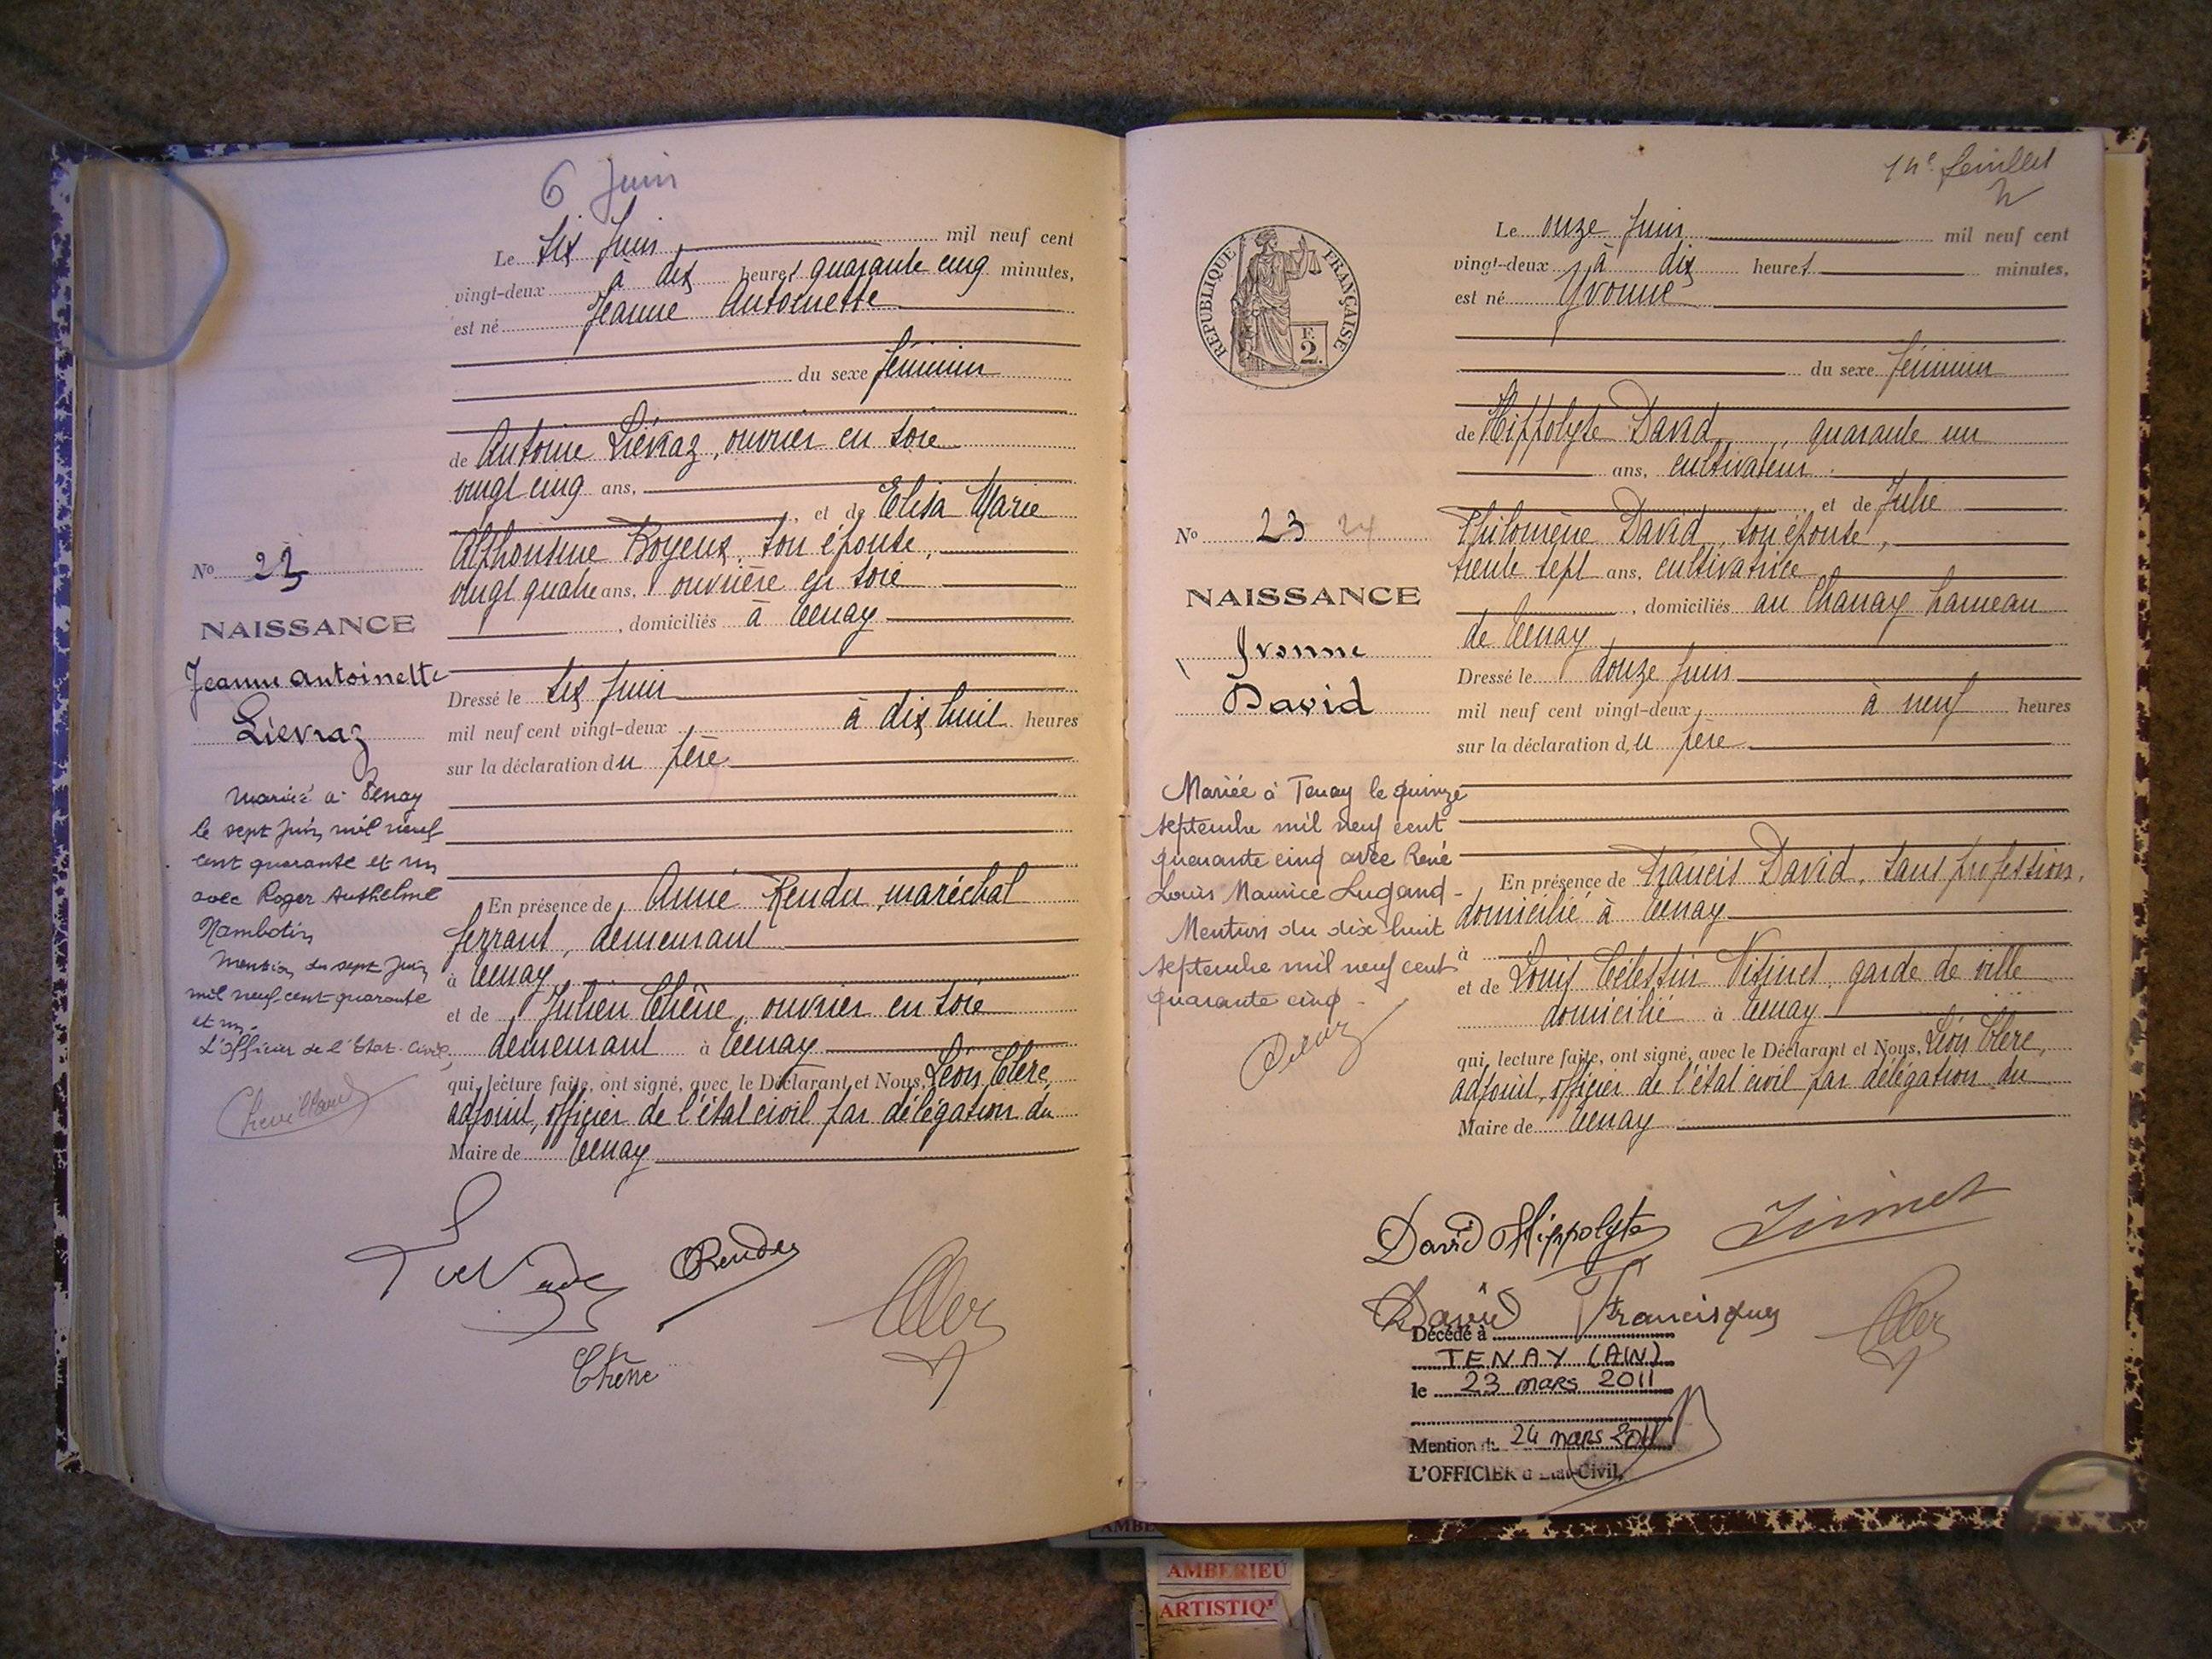 6 Juin
Le six Juin mil neuf cent
vingt-deux à dix heures quarante cinq minutes,
est né Jeanne Antoinette
du sexe féminin
de Antoine Liévraz, ouvrier en soie
vingt cinq ans,
, et de Elisa Marie
Alphonsine Royeux, son épouse,
vingt quatre ans, ouvrière en soie
, domiciliés à Tenay
Dressé le six Juin
mil neuf cent vingt-deux à dix huit heures
sur la déclaration du père
En présence de Aimé Rendu, maréchal
ferrant, demeurant
à Tenay
et de Julien Chêne, ouvrier en soie
demeurant à Tenay
qui, lecture faite, ont signé, avec le Déclarant et Nous, Léon Clerc,
adjoint, officier de l'état civil par délégation du
Maire de Tenay
Rendu
Chêne
No 23
NAISSANCE
Jeanne Antoinette
Liévraz
Mariée à Tenay
le sept Juin mil neuf
cent quarante et un
avec Roger Anthelme
Nambotin
Mention du sept Juin
mil neuf cent quarante
et un.
L'Officier de l'Etat-Civil,
14e feuillet
RÉPUBLIQUE FRANÇAISE
F.
2.
Le onze Juin mil neuf cent
vingt-deux à dix heures minutes,
est né Yvonne
du sexe féminin
de Hippolyte David, quarante un
ans, cultivateur
, et de Julie
Philomène David, son épouse,
trente sept ans, cultivatrice
, domiciliés au Chanay hameau
de Tenay
Dressé le douze Juin
mil neuf cent vingt-deux, à neuf heures
sur la déclaration du père
En présence de Francis David, sans profession,
domicilié à Tenay
à
et de Louis Célestin Vizinet, garde de ville
domicilié à Tenay
qui, lecture faite, ont signé, avec le Déclarant et Nous, Léon Clerc,
adjoint, officier de l'état civil par délégation du
Maire de Tenay
David Hippolyte
David Francisque
Décédé à
TENAY (AIN)
le 23 mars 2011
Mention du 24 mars 2011
L'OFFICIER d'Etat-Civil,
No 23 24
NAISSANCE
Yvonne
David
Mariée à Tenay le quinze
septembre mil neuf cent
quarante cinq avec René
Louis Maurice Lugand -
Mention du dix huit
septembre mil neuf cent
quarante cinq -
AMBERIEU
ARTISTIQ